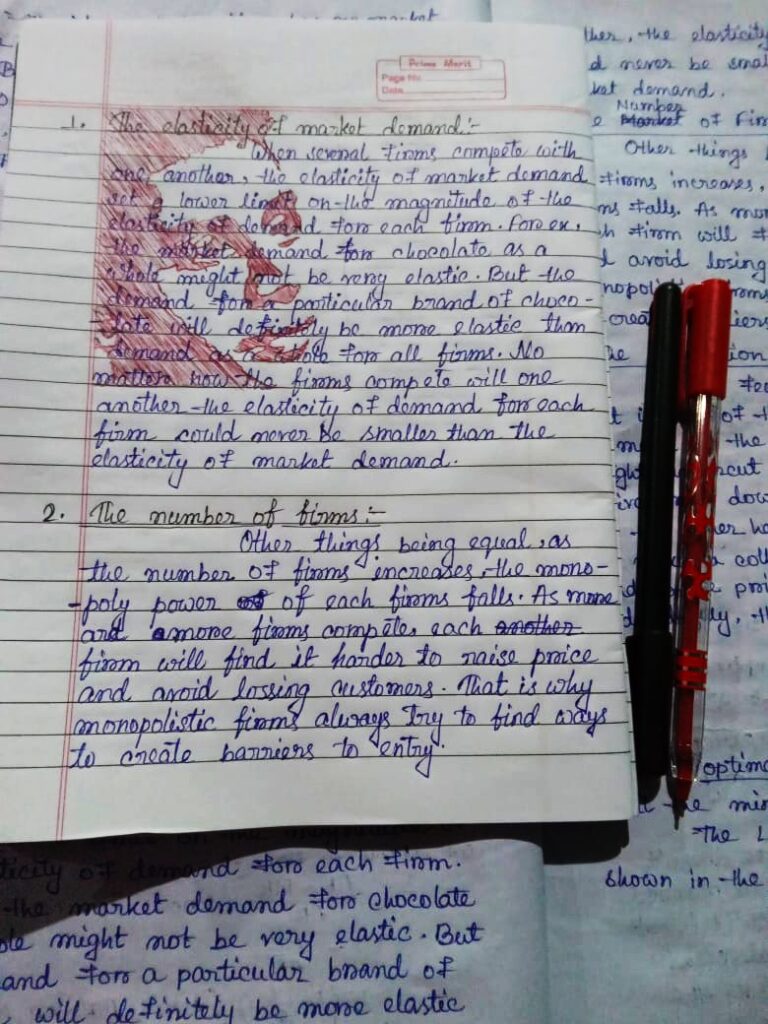 Prime Merit
Page No.
Date
1. The elasticity of market demand:-
When several firms compete with
one another, the elasticity of market demand
set a lower limit on the magnitude of the
elasticity of demand for each firm. For ex.
the market demand for chocolate as a
whole might not be very elastic. But the
demand for a particular brand of choco-
late will definitely be more elastic than
demand as a whole for all firms. No
matter how the firms compete will one
another the elasticity of demand for each
firm could never be smaller than the
elasticity of market demand.
2. The number of firms:-
Other things being equal, as
the number of firms increases, the mono-
-poly power of each firms falls. As more
and more firms compete, each another
firm will find it harder to raise price
and avoid lossing customers. That is why
monopolistic firms always try to find ways
to create barriers to entry.
ticity of demand for each firm.
the market demand for chocolate
ole might not be very elastic. But
and for a particular brand of
, will definitely be more elastic
ther, the elasticity
d never be smal
ket demand.
Number
e Market of Fir
Other things
firms increases,
ms falls. As mor
h firm will f
d avoid losing
nopoli
crea
optima
the min
The L
shown in the